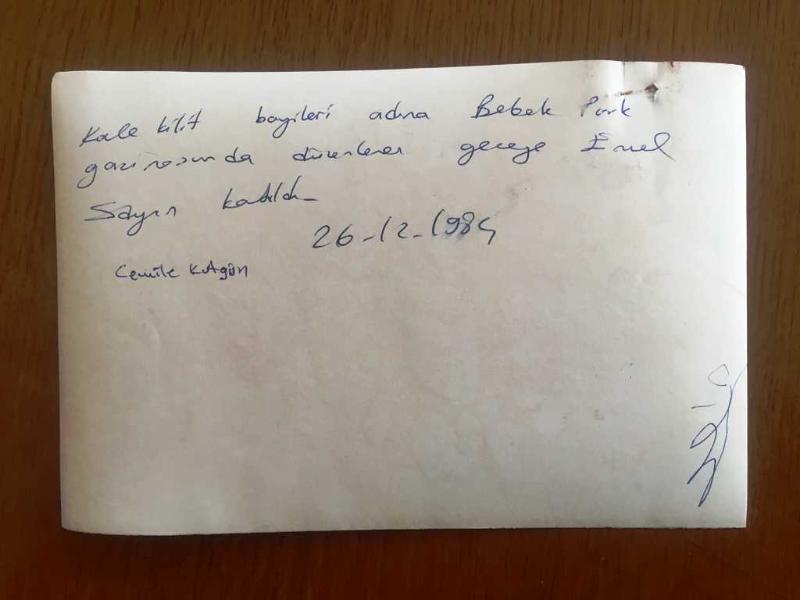 Kale kilit bayileri adına Bebek Park
gazinosunda düzenlenen geceye Emel
Sayın katıldı_
26-12-1984
Cemile